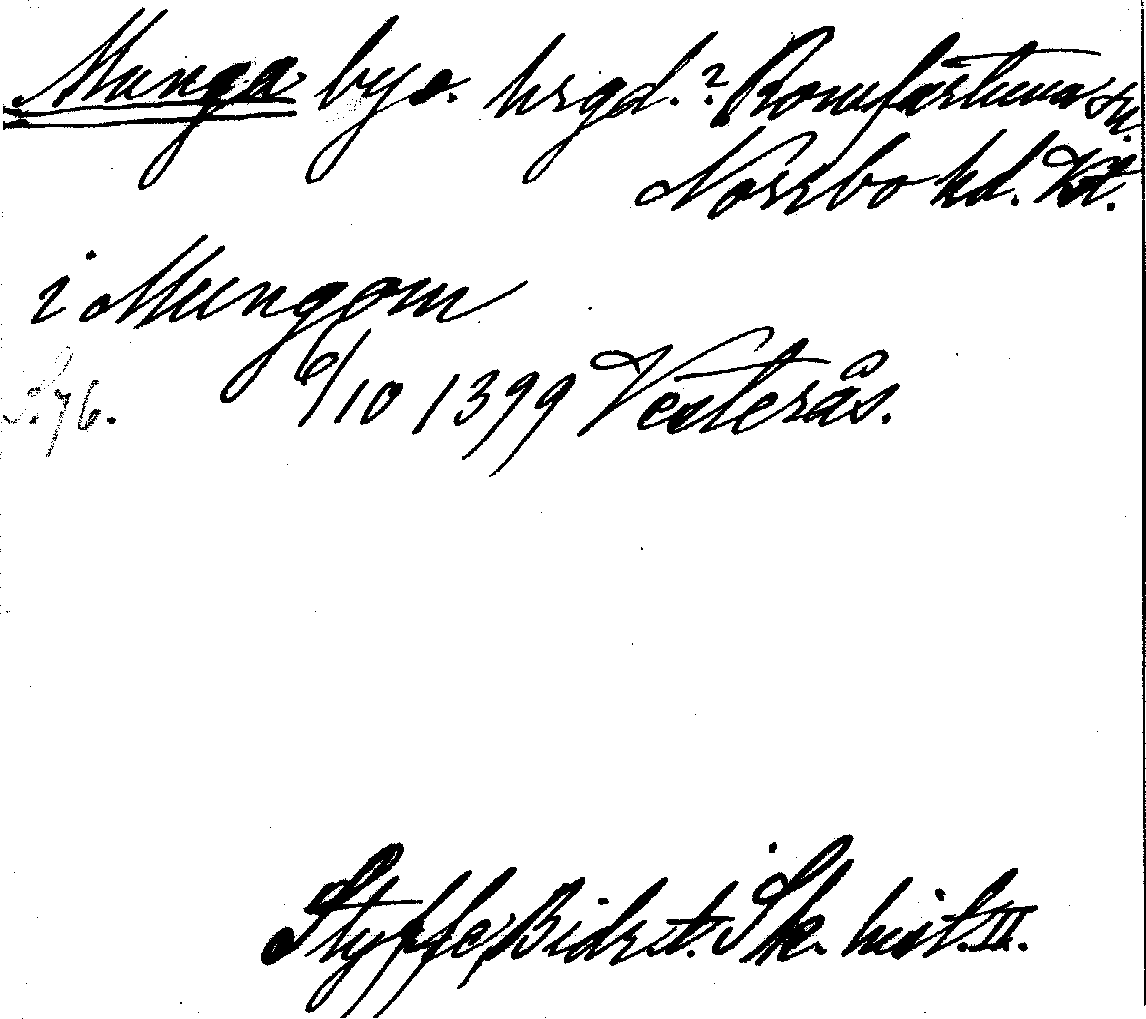 Munga by o. hrgd.? Romfartuna sn.
Norrbo hd. Vstm.
i Mungom
S. 76. 6/10 1399 Vesterås.
Styffe, Bidr. t. Sk. hist. II.